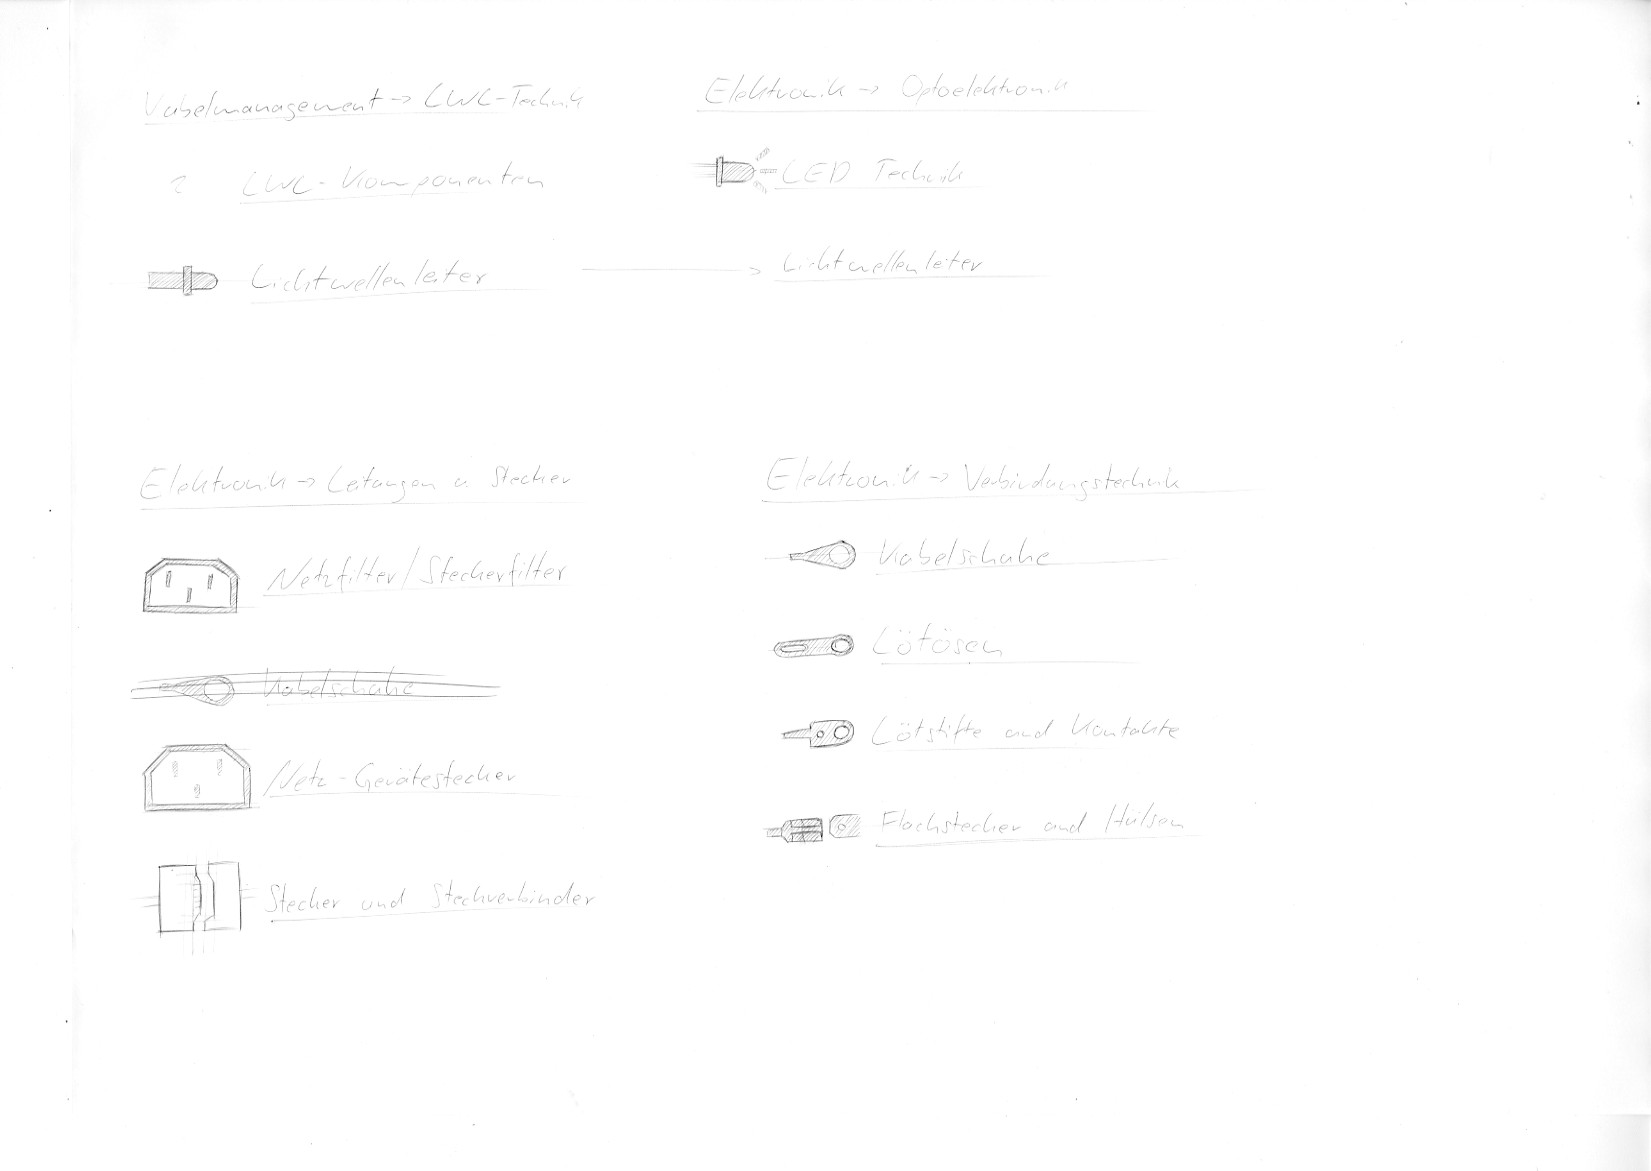 Kabelmanagement -> LWL-Technik
? LWL-Komponenten
Lichtwellenleiter
Elektronik -> Optoelektronik
LED Technik
Lichtwellenleiter
Elektronik -> Leitungen u. Stecker
Netzfilter/Steckerfilter
Kabelschuhe
Netz-Gerätestecker
Stecker und Steckverbinder
Elektronik -> Verbindungstechnik
Kabelschuhe
Lötösen
Lötstifte und Kontakte
Flachstecker und Hülsen